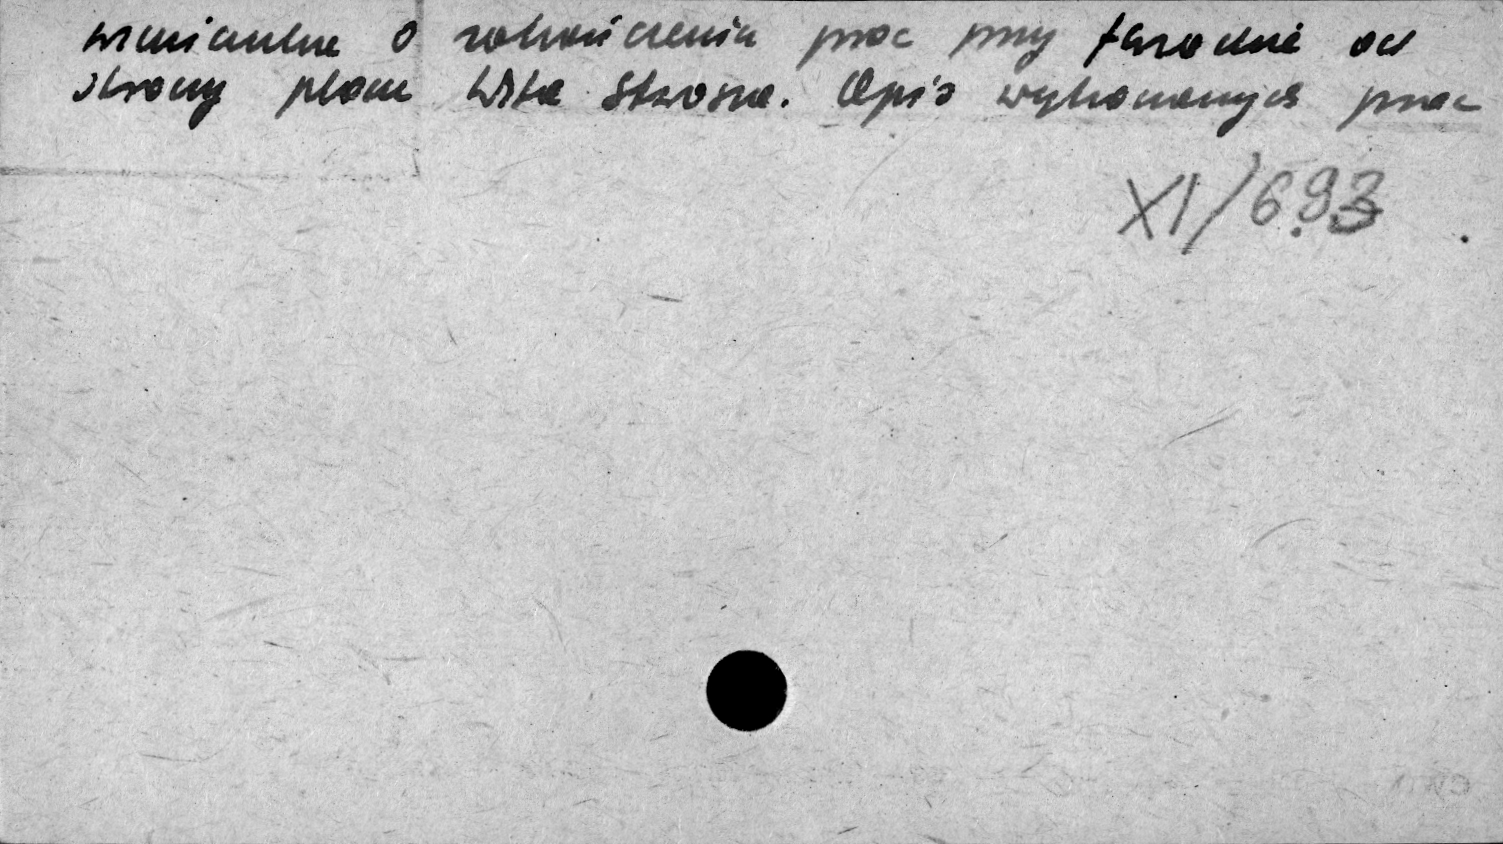 wzmianka o zakończenia prac przy fasadzie od
strony placu Wita Stwosza. Opis wykonanych prac
XI/693